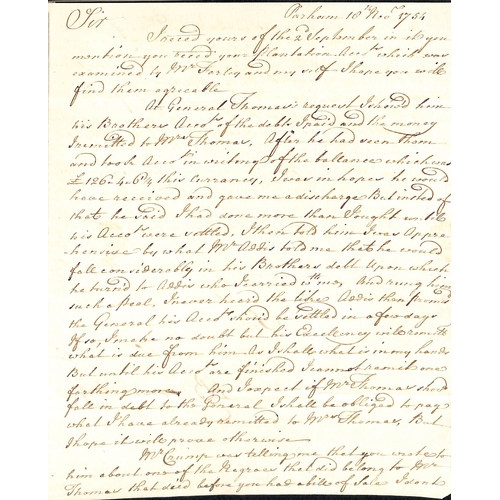 Parham 18th Decr 1754
Sir
I recd yours of the 2d September in it you
mention you recd your Plantation Accots which was
examined by Mr Farley and my self I hope you will
find them agreeable
At General Thomas's request I shewd him
his Brothers Accot of the debts I paid and the money
I remitted to Mrs Thomas, After he had seen them
and took Accot in writing of the ballance which was
£126..4..6¾ this currancy, I was in hopes he would
have received and gave me a discharge But insted of
that he said I had done more than I ought untill
his Accots were settled. I then told him I was Appre
-hensive by what Mr Addis told me that he would
fall considerably in his Brothers debt Upon which
he turnd to Addis who I carried wth me, And rung him
such a Peel, I never heard the like Addis then promisd
the General his Accots shoud be settled in a few days
If so, I make no doubt but his Excellency will remitt
what is due from him As I shall what is in my hands
But untill his Accots are finished I cannot remit one
farthing more. And I expect if Mr Thomas shoud
fall in debt to the General I shall be obliged to pay
what I have already remitted to Mrs Thomas, But
I hope it will prove otherwise
Mr Crump was telling me that you wrote to
him about one of the Negroes that did belong to Mr
Thomas that died before you had a bill of Sale I sent